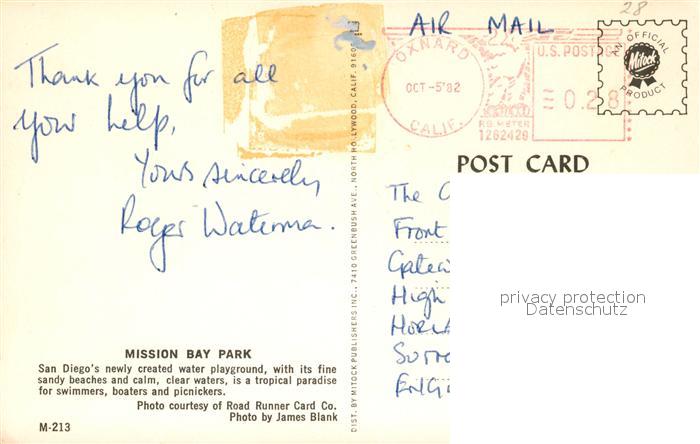 28
AIR MAIL
OXNARD
OCT -5'82
CALIF.
PB METER
1262426
U.S. POSTAGE
0.28
AN OFFICIAL
Mitock
PRODUCT
Thank you for all
your help,
Yours sincerely
Roger Waterman.
POST CARD
The
Front
High
privacy protection
Datenschutz
DIST. BY MITOCK PUBLISHERS INC., 7410 GREENBUSH AVE., NORTH HOLLYWOOD, CALIF. 91605
MISSION BAY PARK
San Diego's newly created water playground, with its fine
sandy beaches and calm, clear waters, is a tropical paradise
for swimmers, boaters and picnickers.
Photo courtesy of Road Runner Card Co.
Photo by James Blank
M-213